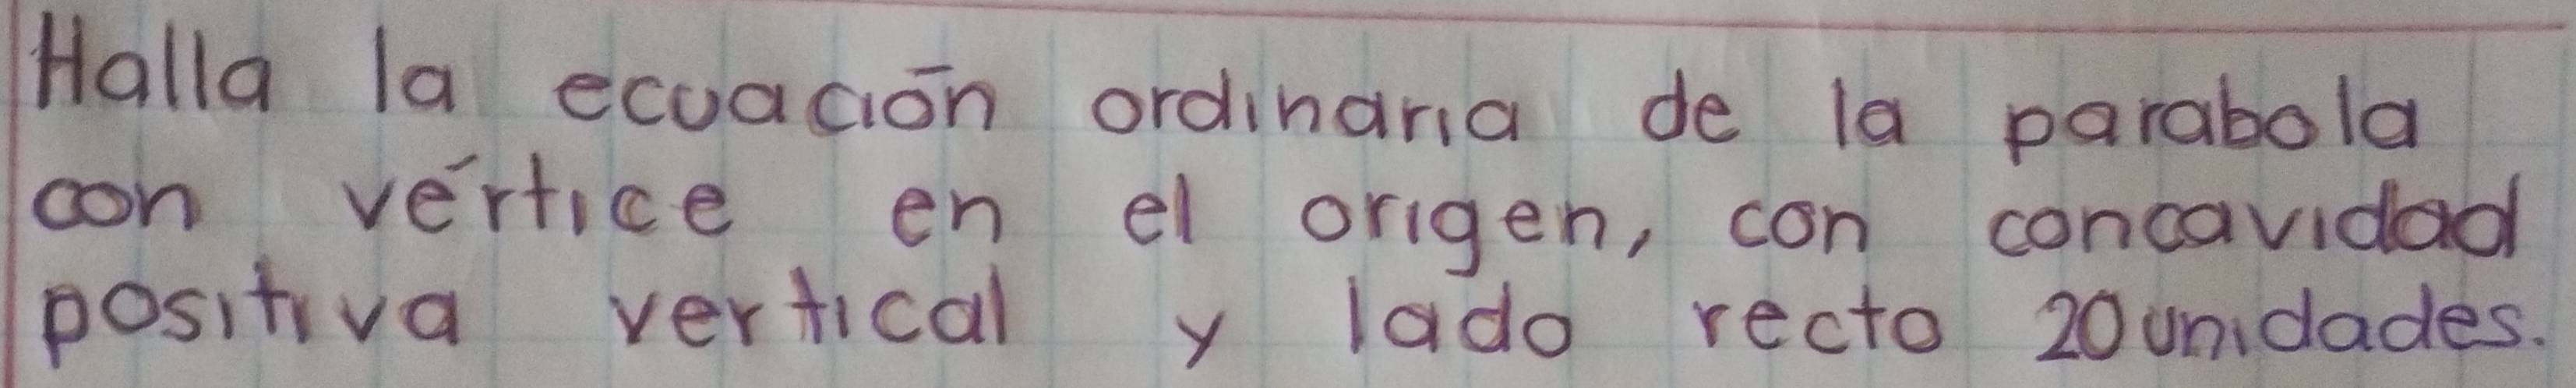 Halla la ecuación ordinaria de la parabola
con vértice en el origen, con concavidad
positiva vertical y lado recto 20 unidades.